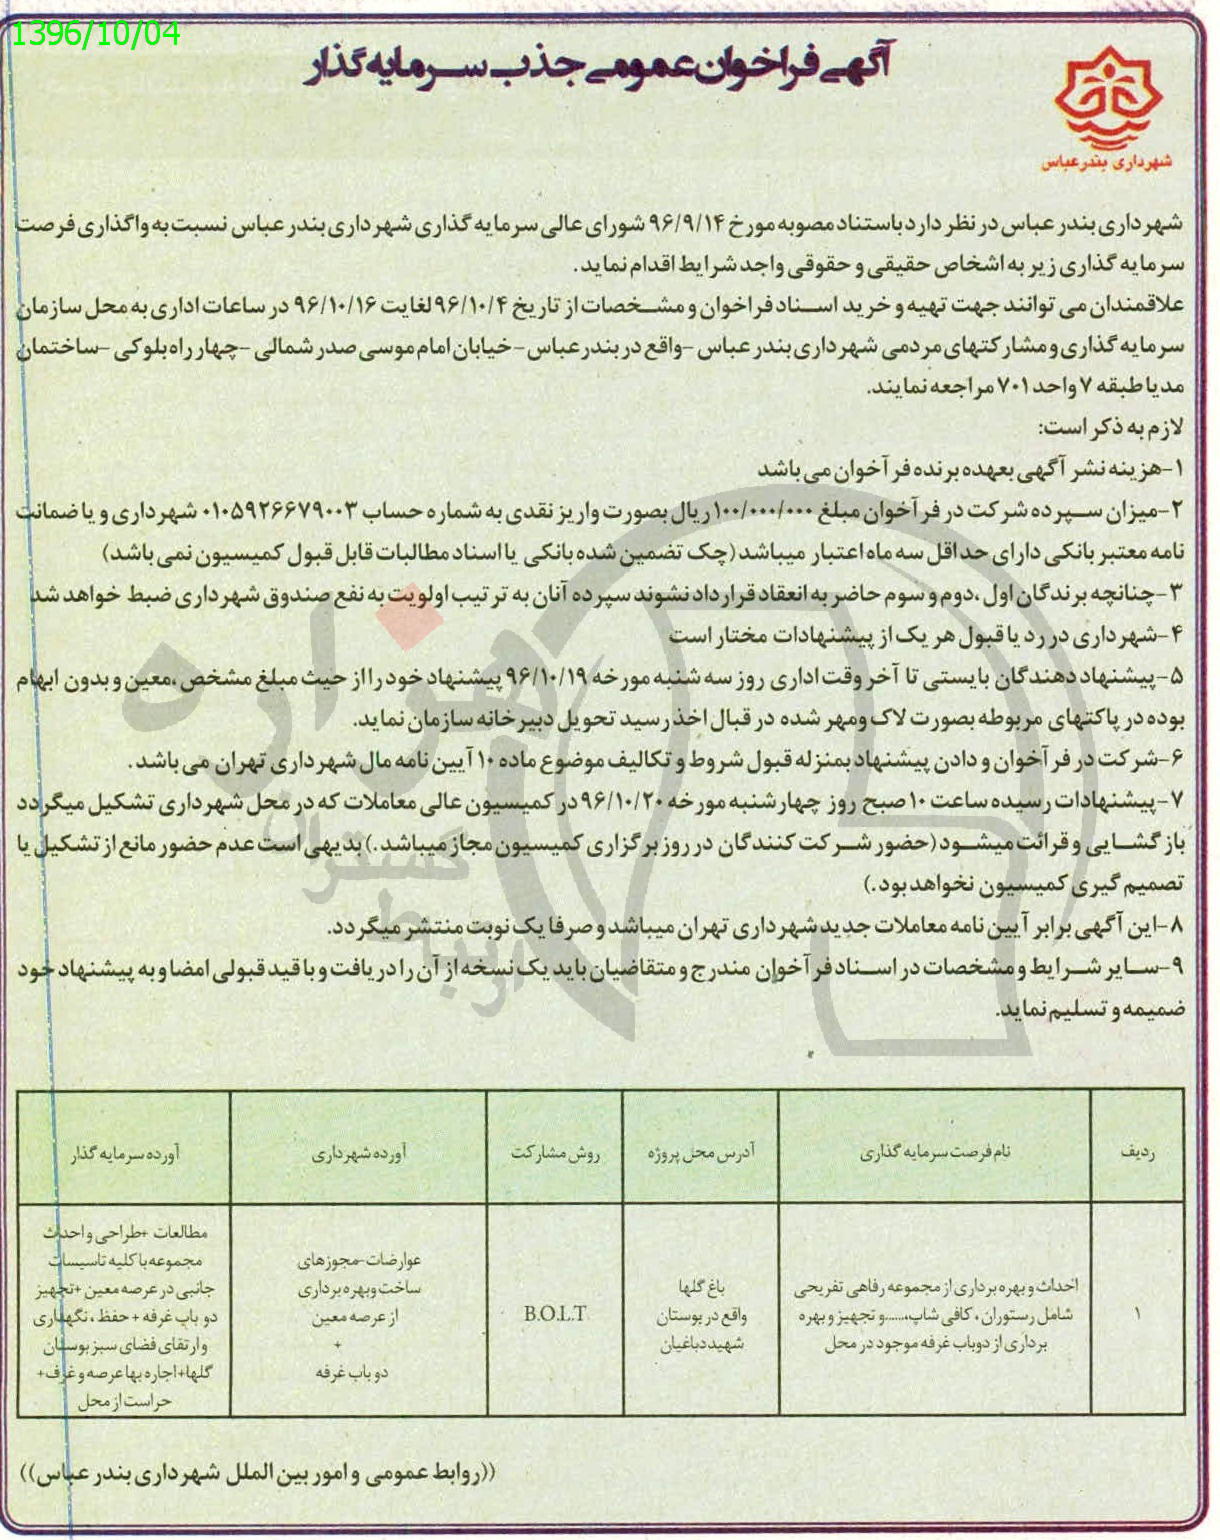 1396/10/04
آگهی فراخوان عمومی جذب سرمایه گذار
شهرداری بندرعباس
شهرداری بندر عباس در نظر دارد باستناد مصوبه مورخ ۹۶/۹/۱۴ شورای عالی سرمایه گذاری شهرداری بندر عباس نسبت به واگذاری فرصت
سرمایه گذاری زیر به اشخاص حقیقی و حقوقی واجد شرایط اقدام نماید.
علاقمندان می توانند جهت تهیه و خرید اسناد فراخوان و مشخصات از تاریخ ۹۶/۱۰/۴ لغایت ۹۶/۱۰/۱۶ در ساعات اداری به محل سازمان
سرمایه گذاری و مشارکتهای مردمی شهرداری بندر عباس -واقع در بندرعباس- خیابان امام موسی صدر شمالی -چهار راه بلوکی -ساختمان
مدیا طبقه ۷ واحد ۷۰۱ مراجعه نمایند.
لازم به ذکر است:
۱-هزینه نشر آگهی بعهده برنده فرآخوان می باشد
۲-میزان سپرده شرکت در فرآخوان مبلغ ۱۰۰/۰۰۰/۰۰۰ ریال بصورت واریز نقدی به شماره حساب ۰۱۰۵۹۲۶۶۷۹۰۰۳ شهرداری و یا ضمانت
نامه معتبر بانکی دارای حداقل سه ماه اعتبار میباشد (چک تضمین شده بانکی یا اسناد مطالبات قابل قبول کمیسیون نمی باشد)
۳-چنانچه برندگان اول ،دوم و سوم حاضر به انعقاد قرارداد نشوند سپرده آنان به ترتیب اولویت به نفع صندوق شهرداری ضبط خواهد شد
۴-شهرداری در رد یا قبول هر یک از پیشنهادات مختار است
۵-پیشنهاد دهندگان بایستی تا آخر وقت اداری روز سه شنبه مورخه ۹۶/۱۰/۱۹ پیشنهاد خود را از حیث مبلغ مشخص ،معین و بدون ابهام
بوده در پاکتهای مربوطه بصورت لاک ومهر شده در قبال اخذ رسید تحویل دبیرخانه سازمان نماید.
۶-شرکت در فرآخوان و دادن پیشنهاد بمنزله قبول شروط و تکالیف موضوع ماده ۱۰ آیین نامه مال شهرداری تهران می باشد.
۷-پیشنهادات رسیده ساعت ۱۰ صبح روز چهارشنبه مورخه ۹۶/۱۰/۲۰ در کمیسیون عالی معاملات که در محل شهرداری تشکیل میگردد
بازگشایی و قرائت میشود (حضور شرکت کنندگان در روز برگزاری کمیسیون مجاز میباشد.) بدیهی است عدم حضور مانع از تشکیل یا
تصمیم گیری کمیسیون نخواهد بود.)
۸-این آگهی برابر آیین نامه معاملات جدید شهرداری تهران میباشد و صرفا یک نوبت منتشر میگردد.
۹-سایر شرایط و مشخصات در اسناد فرآخوان مندرج و متقاضیان باید یک نسخه از آن را دریافت و با قید قبولی امضا و به پیشنهاد خود
ضمیمه و تسلیم نماید.
ردیف
نام فرصت سرمایه گذاری
آدرس محل پروژه
روش مشارکت
آورده شهرداری
آورده سرمایه گذار
۱
احداث و بهره برداری از مجموعه رفاهی تفریحی
شامل رستوران ، کافی شاپ،......و تجهیز و بهره
برداری از دوباب غرفه موجود در محل
باغ گلها
واقع در بوستان
شهید دباغیان
B.O.L.T
عوارضات-مجوزهای
ساخت وبهره برداری
از عرصه معین
+
دو باب غرفه
مطالعات +طراحی و احداث
مجموعه با کلیه تاسیسات
جانبی در عرصه معین +تجهیز
دو باب غرفه + حفظ ، نگهداری
و ارتقای فضای سبز بوستان
گلها+اجاره بها عرصه و غرف+
حراست از محل
((روابط عمومی و امور بین الملل شهرداری بندر عباس))